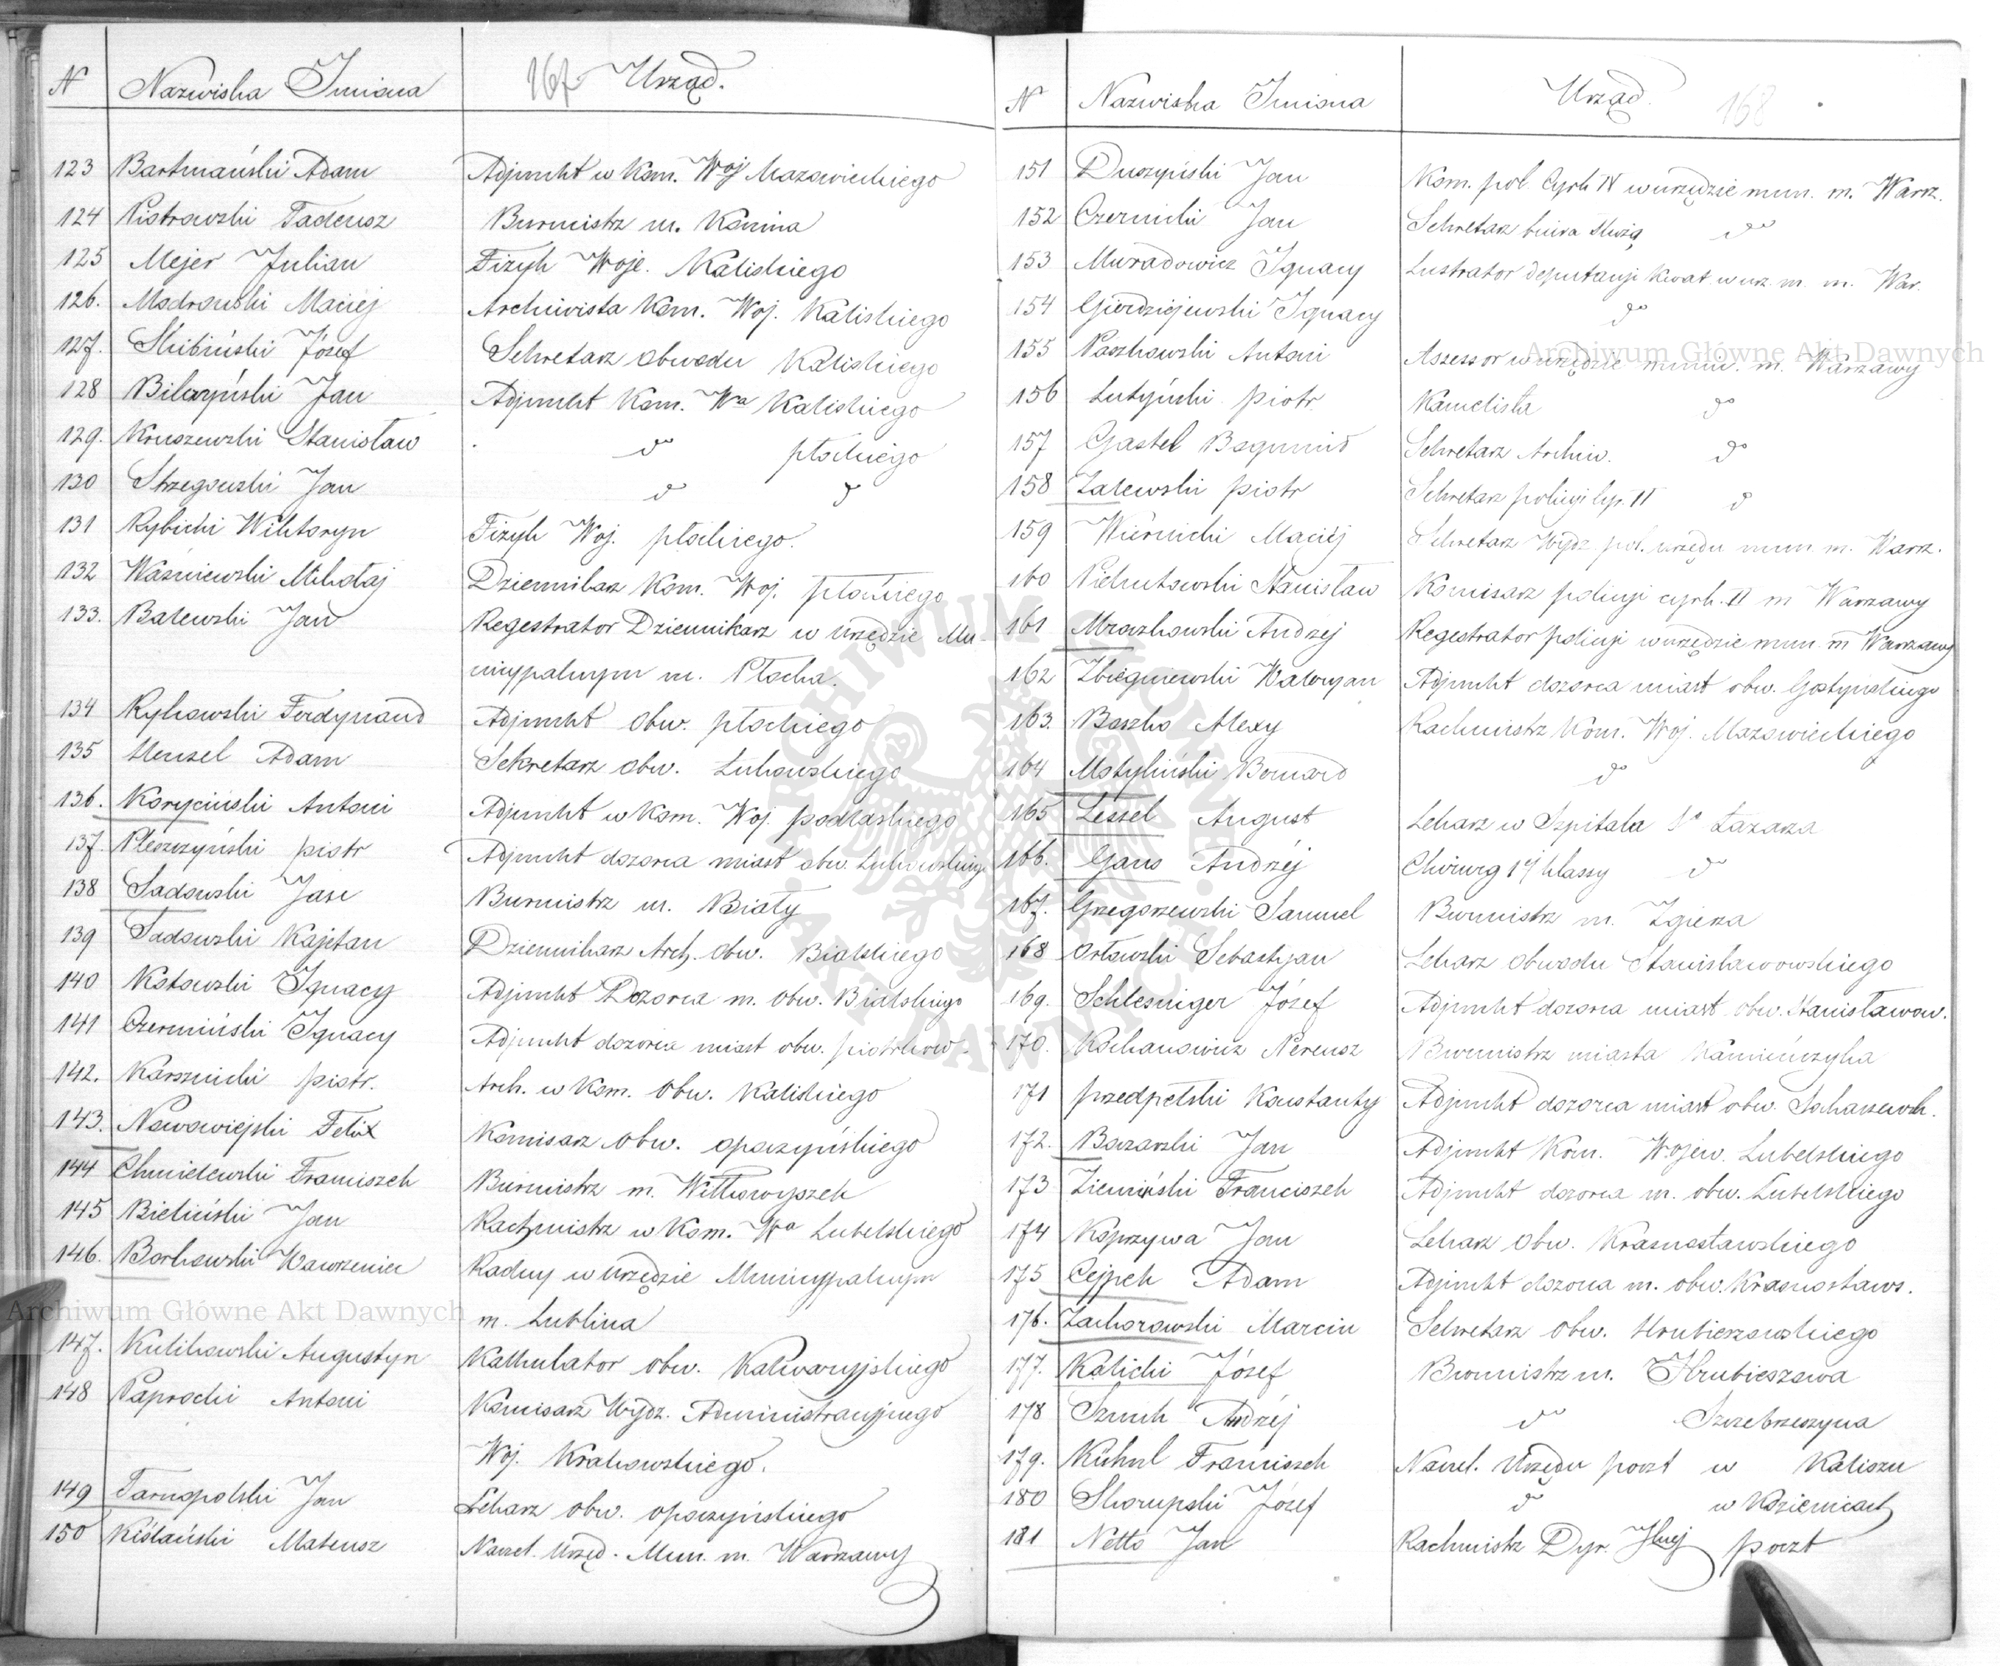 N Nazwiska Imiona 167 Urząd.
123 Bartmański Adam Adjunkt w Kom. Woj Mazowieckiego
124 Piotrowski Tadeusz Burmistrz m. Konina
125 Mejer Julian Fizyk Woje. Kaliskiego
126. Modrowski Maciej Archiwista Kom. Woj. Kaliskiego
127. Skibiński Józef Sekretarz obwodu Kaliskiego
128 Bilczyński Jan Adjunkt Kom. Wa Kaliskiego
129. Kruszewski Stanisław do płockiego
130 Strzegowski Jan do do
131 Rybicki Wiktoryn Fizyk Woj. płockiego.
132 Waśniewski Mikołaj Dziennikarz Kom. Woj. płockiego
133. Balewski Jan Regestrator Dziennikarz w urzędzie Mu-
nicypalnym m. Płocka.
134 Rykowski Ferdynand Adjunkt obw. płockiego
135 Hensel Adam Sekretarz obw. Łukowskiego
136. Koryciński Antoni Adjunkt w Kom. Woj. podlaskiego
137. Pleszczyński piotr Adjunkt dozorca miast obw. Łukowskieg
138 Sadowski Jan Burmistrz m. Biały
139 Sadowski Kajetan Dziennikarz Arch. obw. Bialskiego
140 Kotowski Ignacy Adjunkt Dozorca m. obw. Bialskiego
141 Czermiński Ignacy Adjunkt dozorca miast obw. piotrkow.
142. Karsznicki piotr. Arch. w Kom. obw. Kaliskiego
143. Nowowiejski Felix Komisarz obw. opoczyńskiego
144 Chmielewski Franciszek Burmistrz m. Wittowyszek
145 Bieliński Jan Rachmistrz w Kom. Wa Lubelskiego
146. Borkowski Wawrzeniec Radny w urzędzie Municypalnym
m. Lublina
147. Kulikowski Augustyn Kalkulator obw. Kalwaryjskiego
148 Paprocki Antoni Komisarz Wydz. Administracyjnego
Woj. Krakowskiego.
149 Tarnopolski Jan Lekarz obw. opoczyńskiego
150 Kiślański Mateusz Naczel. Urzęd. Mun. m. Warszawy
N Nazwiska Imiona Urząd. 168
151 Duszyński Jan Kom. pol. Cyrk IV w urzędzie mun. m. Warsz.
152 Czernicki Jan Sekretarz biura służą do
153 Muradowicz Ignacy Lustrator deputacyi kwat. w urz. m. m. War.
154 Gierdziejewski Ignacy do
155 Paszkowski Antoni Assessor w urzędzie munic. m. Warszawy
156 Lutyński piotr Kancelista do
157 Gastel Bogumił Sekretarz Archiw. do
158 Zalewski piotr Sekretarz policyi Cyr. II do
159 Wiernicki Maciej Sekretarz Wydz. pol. urzędu mun. m. Warsz.
160 Piekutowski Stanisław Komisarz policyi cyrk. II m Warszawy
161 Mroczkowski Andrzej Regestrator policyi w urzędzie mun. m Warszawy
162 Zbiegniewski Waleryan Adjunkt dozorca miast obw. Gostyńskiego
163. Boszko Alexy Rachmistrz Kom. Woj. Mazowieckiego
164 Motyliński Bernard do
165 Lessel August Lekarz w Szpitalu So Łazarza
166. Gans Andrzéj Chirurg 1éj klassy do
167. Grzegorzewski Samuel Burmistrz m. Zgierza
168 Orłowski Sebastyan Lekarz obwodu Stanisławowskiego
169. Schlesinger Józef Adjunkt dozorca miast obw. Stanisławow.
170. Kochanowicz Nereusz Burmistrz miasta Kamieńczyka
171 przedpełski Konstanty Adjunkt dozorca miast obw. Sochaczewsk.
172. Bozarski Jan Adjunkt Kom. Wojew. Lubelskiego
173 Ziemiński Franciszek Adjunkt dozorca m. obw. Lubelskiego
174 Koprzywa Jan Lekarz obw. Krasnostawskiego
175 Cejpek Adam Adjunkt dozorca m. obw. Krasnostaws.
176. Zachorowski Marcin Sekretarz obw. Hrubieszowskiego
177. Kalicki Józef Burmistrz m. Hrubieszowa
178 Szmuk Andrzéj do Szczebrzeszyna
179. Kühnl Franciszek Naczel. Urzędu poczt w Kaliszu
180 Skorupski Józef do w Kozienicach
181 Netto Jan Rachmistrz Dyr. Jlnej poczt
Archiwum Główne Akt Dawnych
Archiwum Główne Akt Dawnych
ARCHIWUM GŁÓWNE AKT DAWNYCH